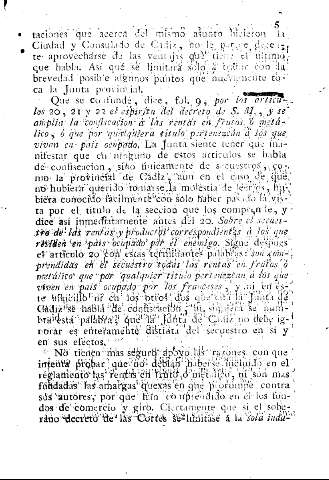 5
taciones que acerca del mismo asunto hicieron la
Ciudad y Consulado de Cadiz, no le parece
te aprovecharse de las ventajas que tiene el último
que habla. Asi que se limitará solo á tratar con la
brevedad posible algunos puntos que nuevamente to-
ca la Junta provincial.
Que se confunde, dice, fol. 9, por los artícu-
los 20, 21 y 22 el espíritu del decreto de S. M., y se
amplía la confiscacion á las rentas en frutos ó metá-
lico, ó que por qualquiera título pertenezcan á los que
viven en pais ocupado. La Junta siente tener que ma-
nifestar que en ninguno de estos artículos se habla
de confiscacion, sino únicamente de seqüestros, co-
mo la provincial de Cadiz, aun en el caso de que
no hubiera querido tomarse la molestia de leerlos, hu-
biera conocido facilmente con solo haber pasado la vis-
ta por el título de la seccion que los comprende, y
dice asi inmediatamente antes del 20. Sobre el seqües-
tro de las rentas y productos correspondientes á los que
residen en pais ocupado por el enemigo. Sigue despues
el artículo 20 con estas terminantes palabras: son com-
prendidas en el seqüestro todas las rentas en frutos ó
metálico que por qualquier título pertenezcan á los que
viven en pais ocupado por los franceses, y ni en es-
te artículo ni en los otros dos que cita la Junta de
Cadiz se habla de confiscacion, ni siquiera se nom-
bra esta palabra, que la Junta de Cadiz no debe ig-
norar es enteramente distinta del seqüestro en sí y
en sus efectos.
No tienen mas seguro apoyo las razones con que
intenta probar que no debian haberse incluido en el
reglamento las rentas en fruto ó metálico, ni son mas
fundadas las amargas quexas en que prorompe contra
sus autores, por que han comprendido en él los fon-
dos de comercio y giro. Ciertamente que si el sobe-
rano decreto de las Cortes se limitase á la sola indi-